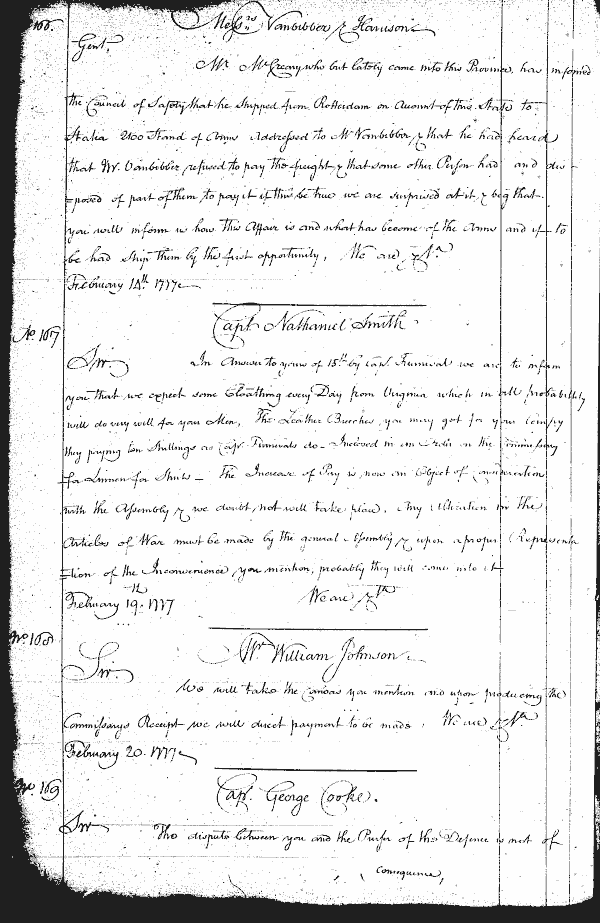 166.
Messrs Vanbibber & Harrison
Gent,
Mr McCreary who but lately came into this Province, has informed
the Council of Safety that he shipped from Rotterdam on Account of this State to
Statia 2100 Stand of Arms addressed to Mr Vanbibber, & that he had heard
that Mr. Vanbibber refused to pay the freight, & that some other Person had and dis-
=posed of part of them, to pay it if this be true we are surprised at it, & beg that
you will inform us how this Affair is and what has become of the Arms and if to
be had ship them by the first opportunity, We are, &ca
February 14th 1777
No 167
Capt Nathaniel Smith
Sir.
In Answer to yours of 15th by Capt. Furnival we are to inform
you that we expect some Cloathing every Day from Virginia which in all probability
will do very well for you Men, The Leather Breeches you may get for your Compy
they paying ten Shillings as Capt Furnivals do - Inclosed is an Order on the Commissary
for Linnen for Shirts - The Increase of Pay is now an Object of Consideration
with the Assembly & we doubt not will take place. Any Alteration in the
Articles of War must be made by the general Assembly & upon a proper Representa
=tion of the Inconvenience you mention, probably they will come into it
February 19th 1777 We are &ca
No 168
Mr William Johnson
Sir.
We will take the Canvas you mention and upon producing the
Commissarys Receipt we will direct payment to be made. We are &ca
February 20. 1777
No. 169
Capt. George Cooke.
Sir
The dispute between you and the Purser of the Defence is not of
Consequence,